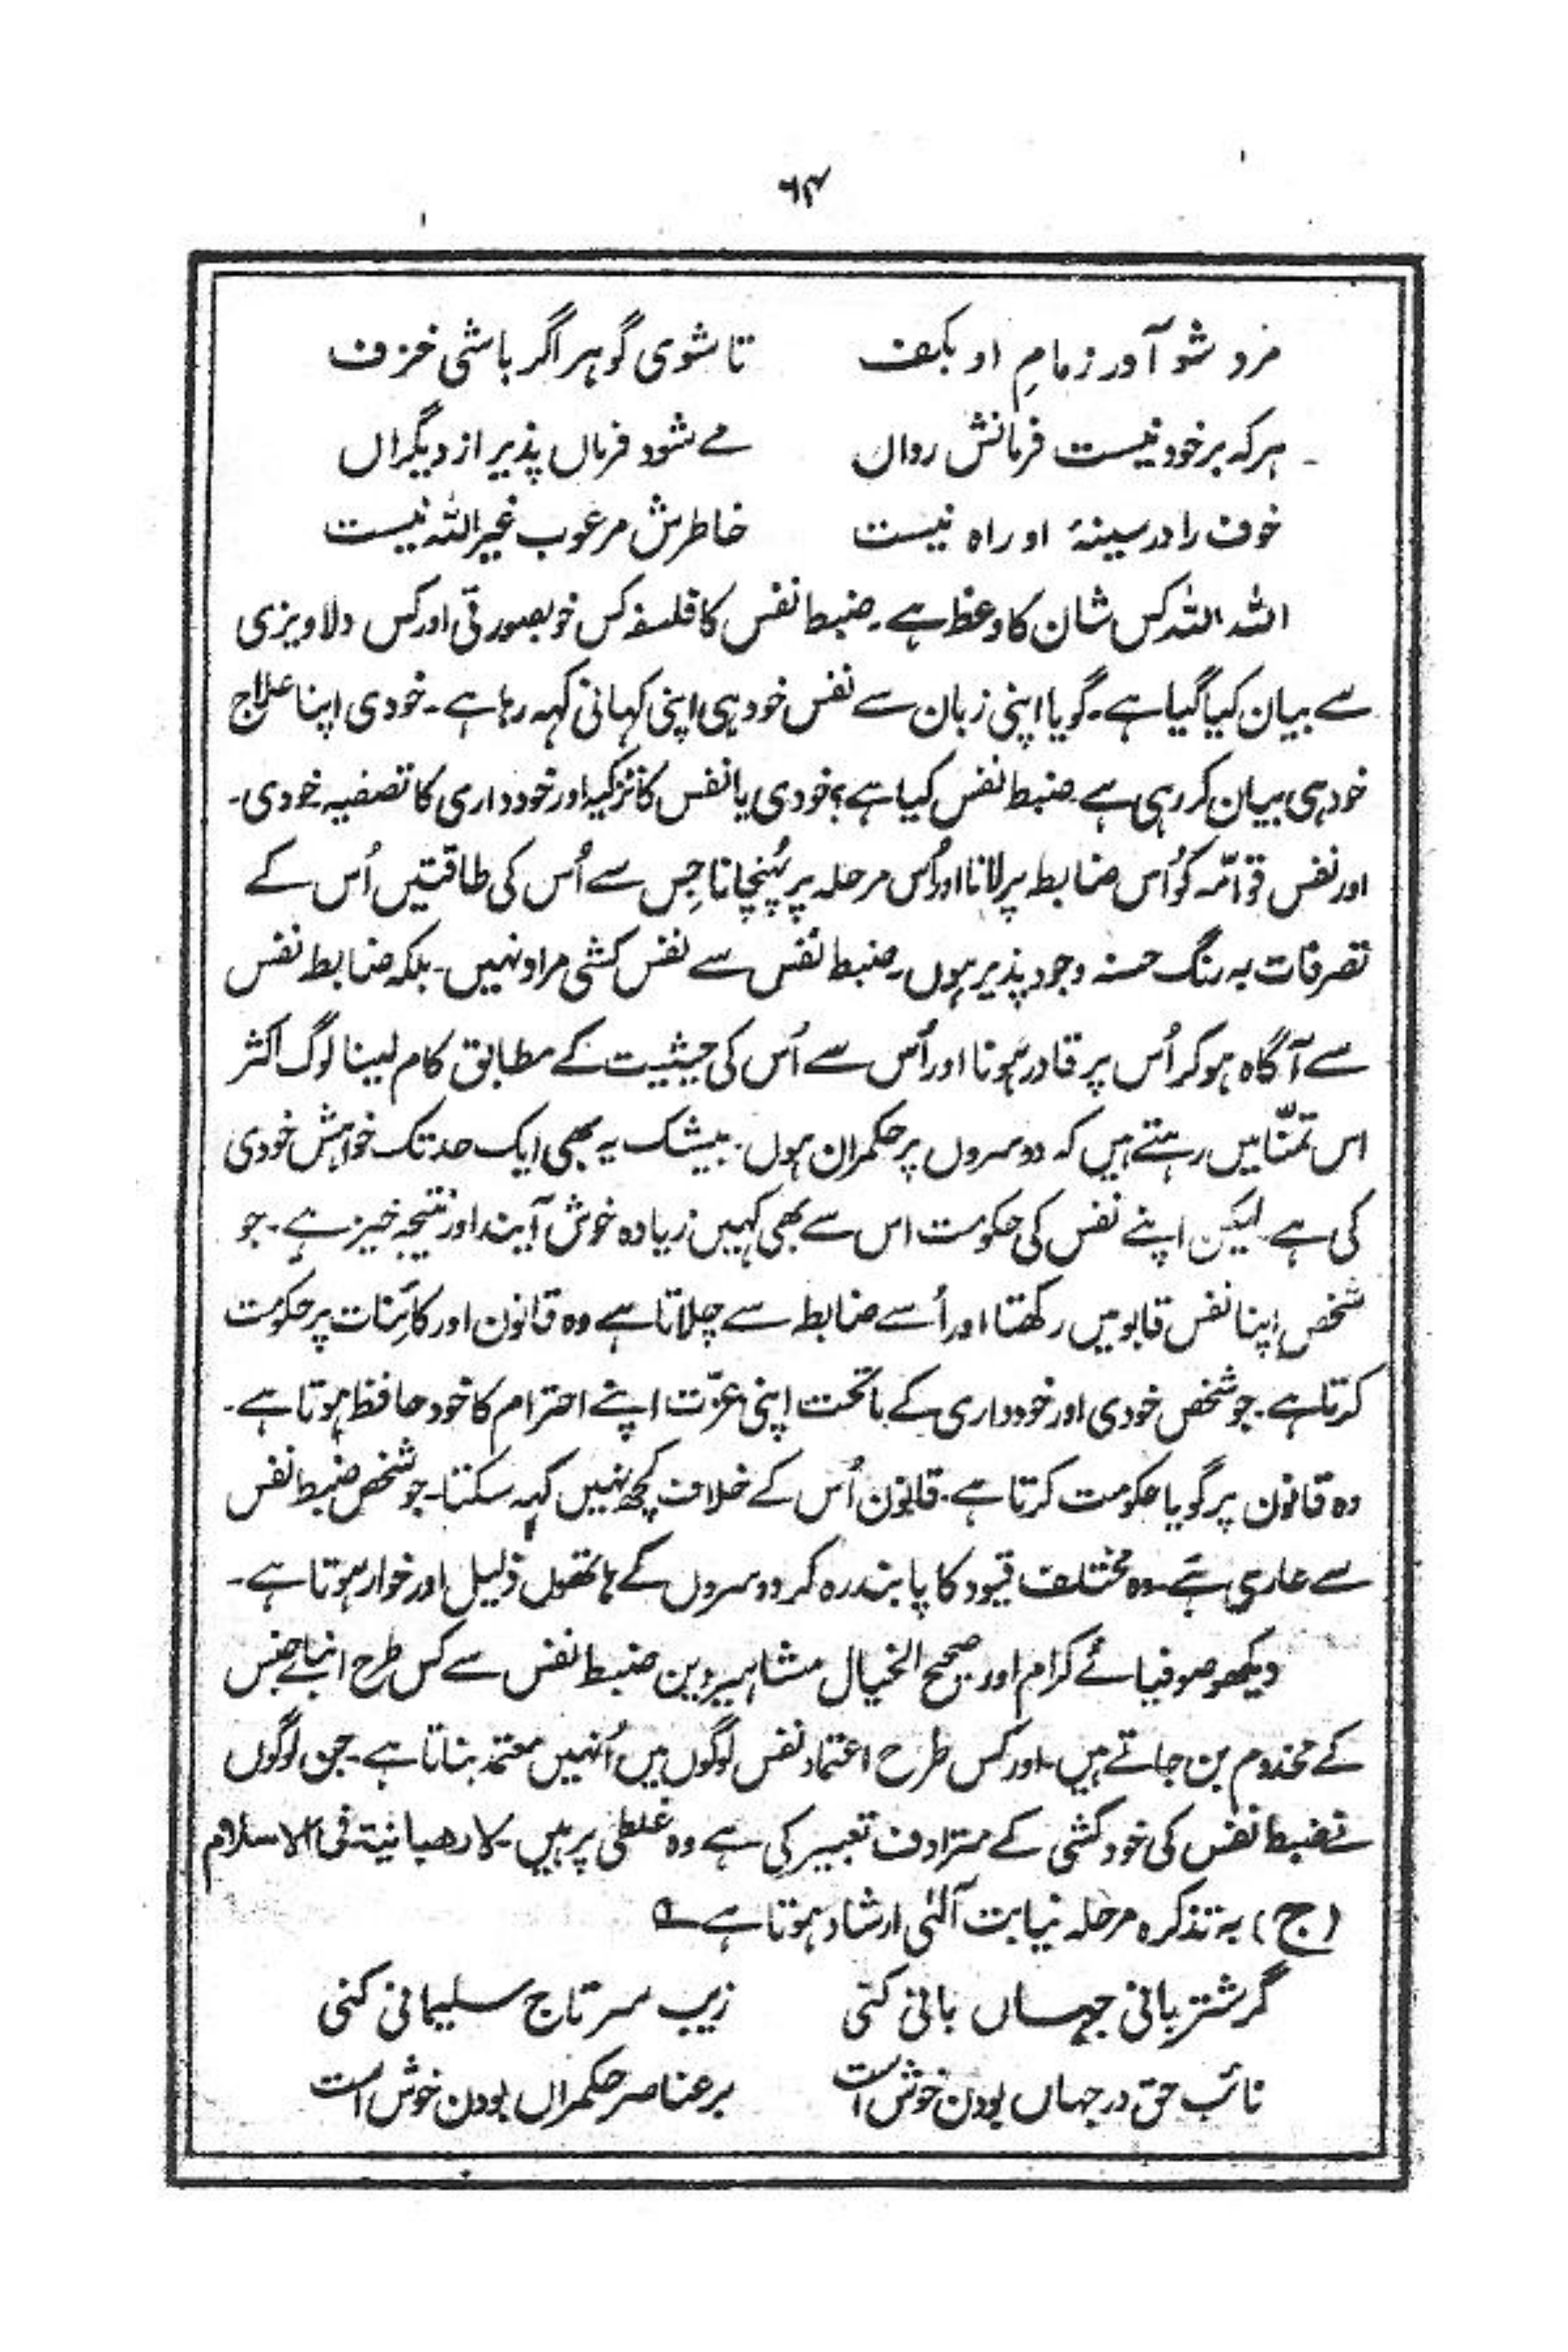 ۶۴
مرد شو آور زمامِ او بکف تا شوی گوہر اگر باشی خزف
ہرکہ بر خود نیست فرمانش رواں مے شود فرماں پذیر از دیگراں
خوف را در سینۂ او راہ نیست خاطرش مرعوب غیر اللہ نیست
اللہ اللہ کس شان کا وعظ ہے۔ ضبط نفس کا فلسفہ کس خوبصورتی اور کس دلاویزی
سے بیان کیا گیا ہے۔ گویا اپنی زبان سے نفس خود ہی اپنی کہانی کہہ رہا ہے۔ خودی اپنا علاج
خود ہی بیان کر رہی ہے ضبط نفس کیا ہے؟ خودی یا نفس کا تزکیہ اور خودداری کا تصفیہ خودی۔
اور نفس قوامّہ کو اُس ضابطہ پر لانا اور اُس مرحلہ پر پُہنچانا جِس سے اُس کی طاقتیں اُس کے
تصرفات بہ رنگ حسنہ وجود پذیر ہوں۔ ضبط نفس سے نفس کشی مراد نہیں۔ بلکہ ضابط نفس
سے آگاہ ہو کر اُس پر قادر ہونا اور اُس سے اُس کی حیثیت کے مطابق کام لینا لوگ اکثر
اس تمنّا میں رہتے ہیں کہ دوسروں پر حکمران ہوں۔ بیشک یہ بھی ایک حد تک خواہش خودی
کی ہے۔ لیکن اپنے نفس کی حکومت اس سے بھی کہیں زیادہ خوش آیند اور نتیجہ خیز ہے۔ جو
شخص اپنا نفس قابو میں رکھتا اور اُسے ضابطہ سے چلاتا ہے وہ قانون اور کائنات پر حکومت
کرتا ہے۔ جو شخص خودی اور خودداری کے ماتحت اپنی عزّت اپنے احترام کا خود حافظ ہوتا ہے۔
وہ قانون پر گویا حکومت کرتا ہے۔ قانون اُس کے خلاف کچھ نہیں کہہ سکتا۔ جو شخص ضبط نفس
سے عاری ہے۔ وہ مختلف قیود کا پابند رہ کر دوسروں کے ہاتھوں ذلیل اور خوار ہوتا ہے۔
دیکھو صوفیائے کرام اور صحیح الخیال مشاہیر دین ضبط نفس سے کس طرح ابنائے جنس
کے مخدوم بن جاتے ہیں۔ اور کس طرح اعتماد نفس لوگوں میں اُنہیں معتمد بناتا ہے۔ جن لوگوں
نے ضبط نفس کی خود کشی کے مترادف تعبیر کی ہے وہ غلطی پر ہیں۔ لا رھبانیۃ فی الاسلام
(ج) بہ تذکرہ مرحلہ نیابت آلٰہی ارشاد ہوتا ہے ؎
گر شتربانی جہاں بانی کنی زیب سر تاج سلیمانی کنی
نائب حق در جہاں بودن خوش است بر عناصر حکمراں بودن خوش است